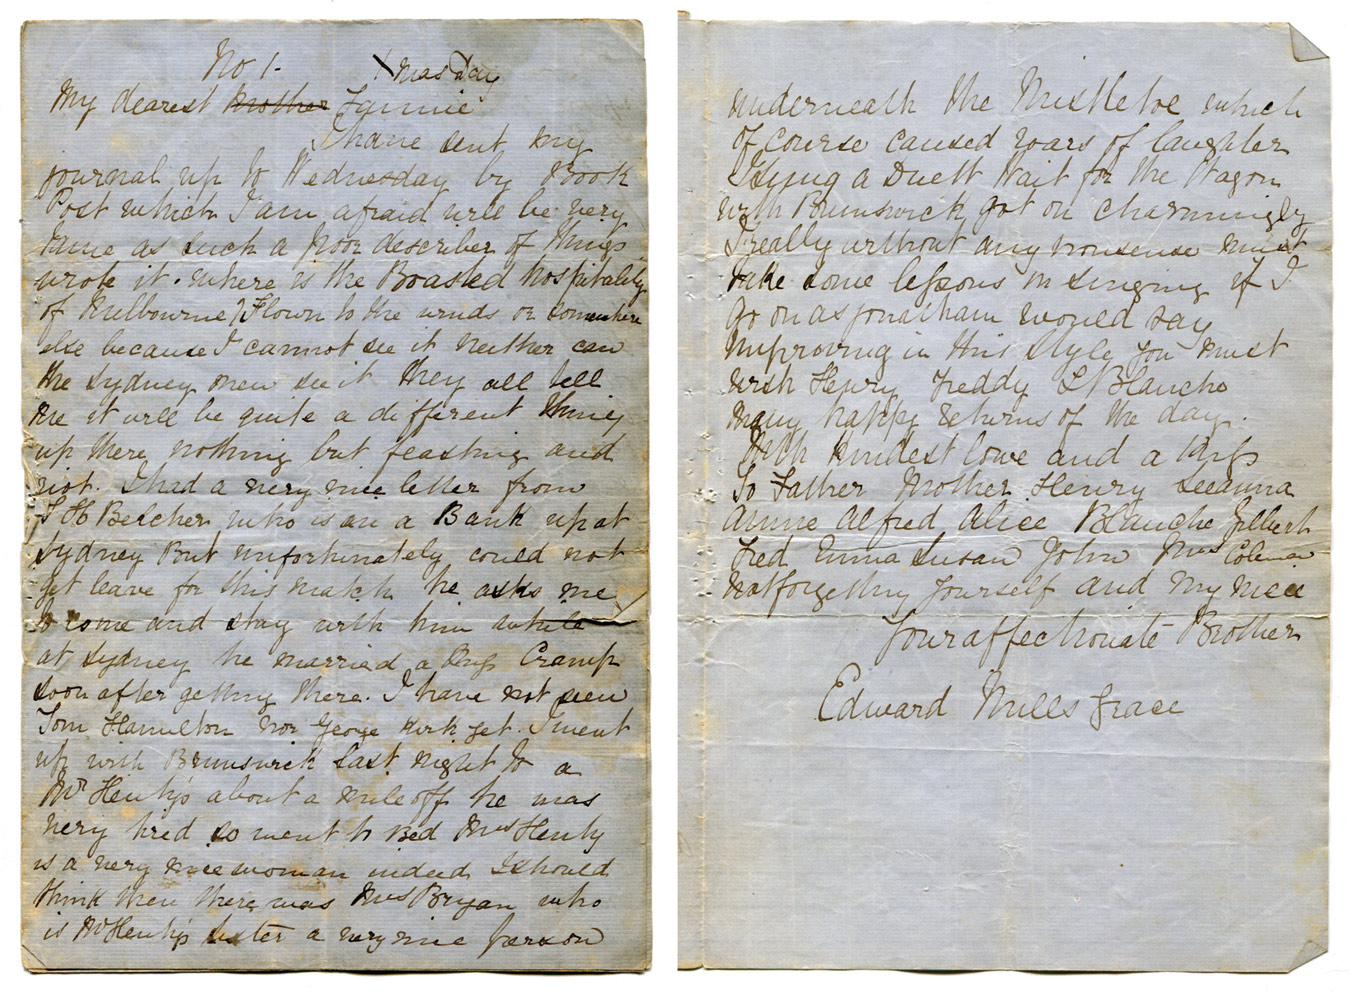 No 1. Xmas Day
My dearest Mother Fannie
I have sent my
journal up to Wednesday by Book
Post which I am afraid will be very
tame as such a poor describer of things
wrote it. where is the Boasted hospitality
of Melbourne? Flown to the winds or somewhere
else because I cannot see it neither can
the Sydney men see it they all tell
me it will be quite a different thing
up there nothing but feasting and
riot. I had a very nice letter from
Belcher who is in a Bank up at
Sydney But unfortunately could not
get leave for this match he asks me
to come and stay with him while
at Sydney he married a Miss Cramp
soon after getting there. I have not seen
Tom Hamilton nor George Kirk yet. I went
up with Brunswick last night to a
Mr Henty's about a mile off he was
very tired so went to Bed Mrs Henty
is a very nice woman indeed I should
think then there was Mrs Bryan who
is Mr Henty's sister a very nice person
underneath the Mistletoe which
of course caused roars of laughter
Trying a Duett Wait for the Wagon
with Brunswick got on charmingly
I really without any nonsense must
take some lessons in singing if I
go on as Jonatham would say
improving in this style you must
wish Henry Freddy & Blanche
many happy returns of the day.
With kindest love and a kiss
To Father Mother Henry Leeanna
Annie Alfred Alice Blanche Gilbert
Fred Emma Susan John Mrs Coleman
not forgetting yourself and my niece
Your affectionate Brother
Edward Mills Grace